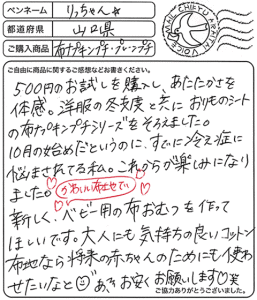 ペンネーム りっちゃん☆
都道府県 山口県
ご購入商品 布ナプキンプチ・プレーンプチ
MAIL CHIEKU
VOICE
ご自由に商品に関するご感想などお書きください。
500円のお試しを購入し、あたたかさを
体感。洋服の冬支度と共におりものシート
の布ナプキンプチシリーズをそろえました。
10月の始めだというのに、すでに冷え症に
悩まされてる私。これからが楽しみになり
ました。
かわいい布地でぃ♡
新しく、ベビー用の布おむつを作って
ほしいです。大人にも気持ちの良いコットン
布地なら将来の赤ちゃんのためにも使わ
せたいなと☺ あきお安くお願いします♡笑
ご協力ありがとうございました。